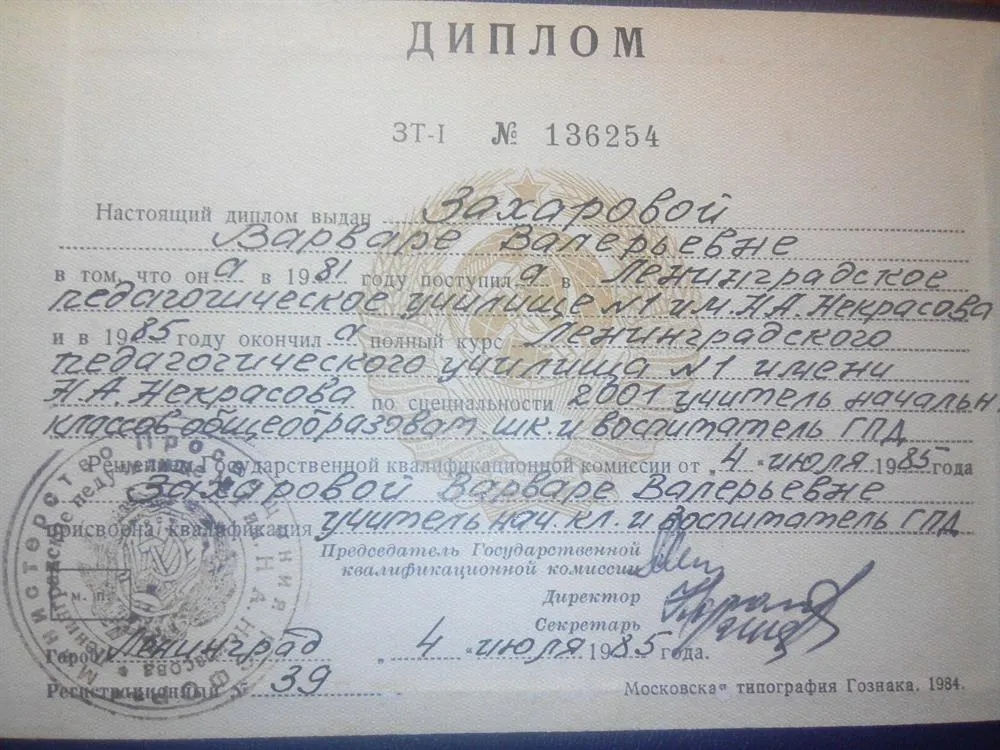 ДИПЛОМ
ЗТ-I № 136254
Настоящий диплом выдан Захаровой
Варваре Валерьевне
в том, что он а в 1981 году поступил а в Ленинградское
педагогическое училище №1 им. Н.А. Некрасова
и в 1985 году окончил а полный курс Ленинградского
педагогического училища №1 имени
Н.А. Некрасова по специальности 2001 учитель начальн
классов общеобразоват. шк. и воспитатель ГПД
Решением Государственной квалификационной комиссии от „ 4 “ июля 1985 года
Захаровой Варваре Валерьевне
присвоена квалификация учитель нач. кл. и воспитатель ГПД
Председатель Государственной
квалификационной комиссии
Директор
Секретарь
м. п.
Город Ленинград „ 4 “ июля 1985 года.
Регистрационный № 39
Московская типография Гознака. 1984.
Министерство Просвещения